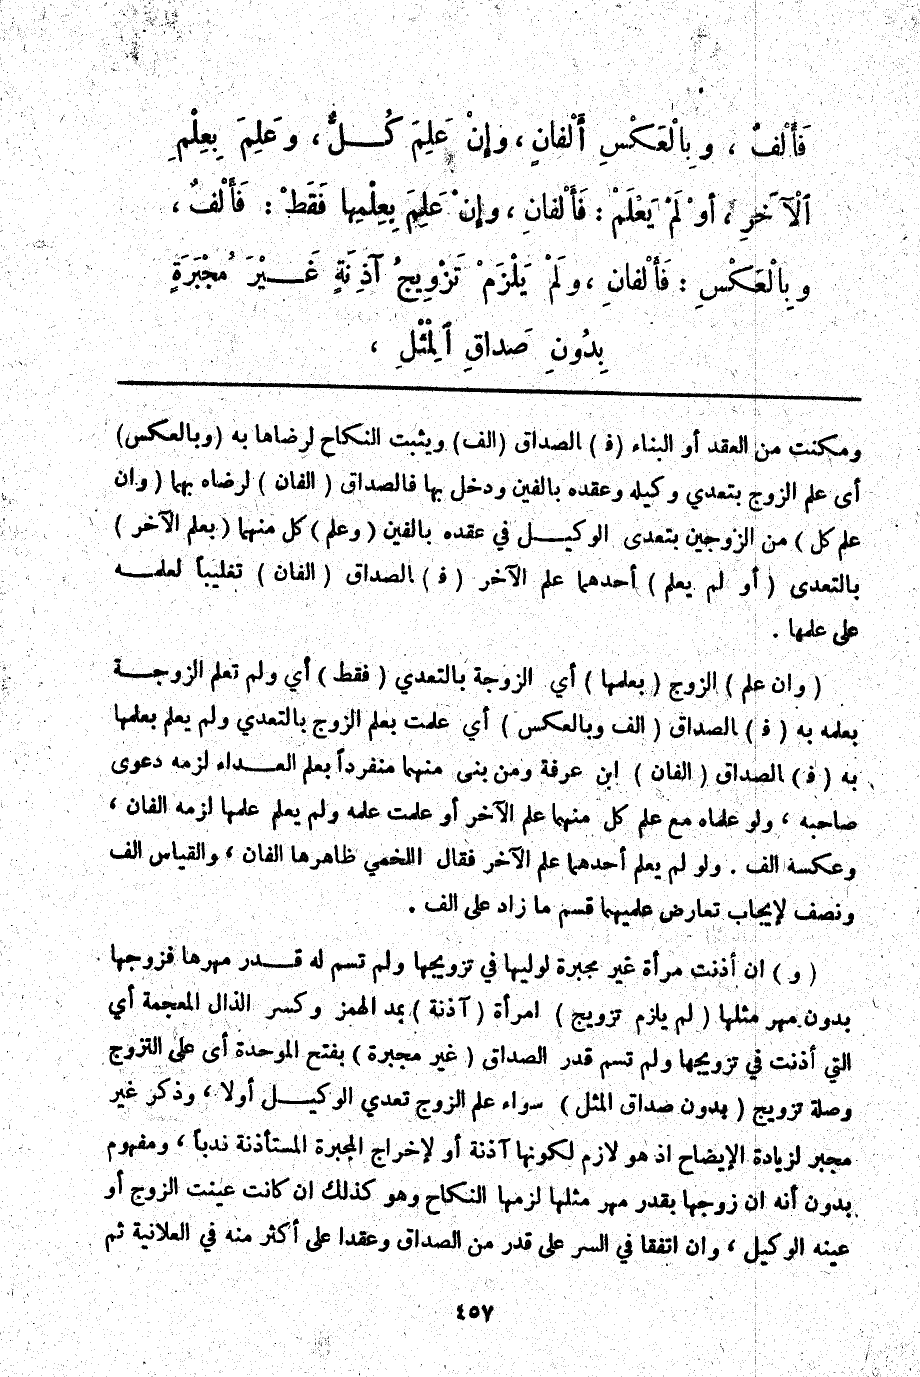 فَأَلْفٌ ، وبِالْعَكْسِ أَلْفانِ ، وإِنْ عَلِمَ كُــلٌّ ، وعَلِمَ بِعِلْمِ
ٱلْآخَرِ ، أوْ لَمْ يَعْلَمْ : فَأَلْفانِ ، وإِنْ عَلِمَ بِعِلْمِها فَقَطْ : فَأَلْفٌ ،
وبِالْعَكْسِ : فَأَلْفانِ ، ولَمْ يَلْزَمْ تَزْوِيجُ آذِنَةٍ غَــيْرَ مُجْبَرَةٍ
بِدُونِ صَداقِ ٱلْمِثْلِ ،
ومكنت من العقد أو البناء (فـ) الصداق (الف) ويثبت النكاح لرضاها به (وبالعكس)
أى علم الزوج بتعدي وكيله وعقده بالفين ودخل بها فالصداق ( الفان ) لرضاه بهما ( وان
علم كل ) من الزوجين بتعدى الوكيــل في عقده بالفين ( وعلم ) كل منهما ( بعلم الآخر )
بالتعدى ( أو لم يعلم ) أحدهما علم الآخر ( فـ ) الصداق ( الفان ) تغليباً لعلمــه
على علمها .
( وان علم ) الزوج ( بعلمها ) أي الزوجة بالتعدي ( فقط ) أي ولم تعلم الزوجــة
بعلمه به ( فـ ) الصداق ( الف وبالعكس ) أي علمت بعلم الزوج بالتعدي ولم يعلم بعلمها
به ( فـ ) الصداق ( الفان ) ابن عرفة ومن بنى منهما منفرداً بعلم العــداء لزمه دعوى
صاحبه ، ولو علماه مع علم كل منهما علم الآخر أو علمت علمه ولم يعلم علمها لزمه الفان ،
وعكسه الف . ولو لم يعلم أحدهما علم الآخر فقال اللخمي ظاهرها الفان ، والقياس الف
ونصف لإيجاب تعارض علميهما قسم ما زاد على الف .
( و ) ان أذنت مرأة غير مجبرة لوليها في تزويجها ولم تسم له قــدر مهرها فزوجها
بدون مهر مثلها ( لم يلزم تزويج ) امرأة ( آذنة ) بمد الهمز وكسر الذال المعجمة أي
التي أذنت في تزويجها ولم تسم قدر الصداق ( غير مجبرة ) بفتح الموحدة أى على التزوج
وصلة تزويج ( بدون صداق المثل ) سواء علم الزوج تعدي الوكيــل أولا ، وذكر غير
مجبر لزيادة الإيضاح اذ هو لازم لكونها آذنة أو لإخراج المجبرة المستأذنة ندباً ، ومفهوم
بدون أنه ان زوجها بقدر مهر مثلها لزمها النكاح وهو كذلك ان كانت عينت الزوج أو
عينه الوكيل ، وان اتفقا في السر على قدر من الصداق وعقدا على أكثر منه في العلانية ثم
٤٥٧